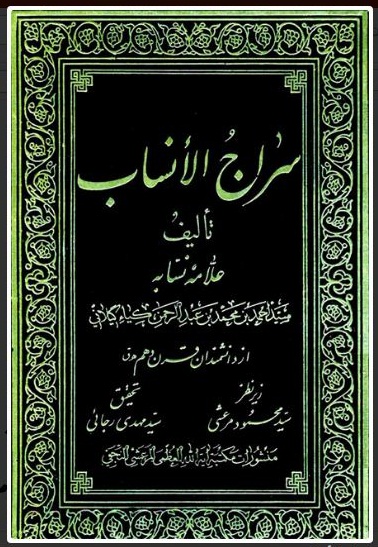 سراجُ الأنساب
تأليف
علّامه نسّابه
سيّد احمد بن محمّد بن عبد الرّحمن كياء گيلانى
از دانشمندان قرن دهم هجرى
زير نظر
سيّد محمود مرعشى
تحقيق
سيّد مهدى رجائى
منشورات مكتبة آية الله العظمى المرعشى النجفى